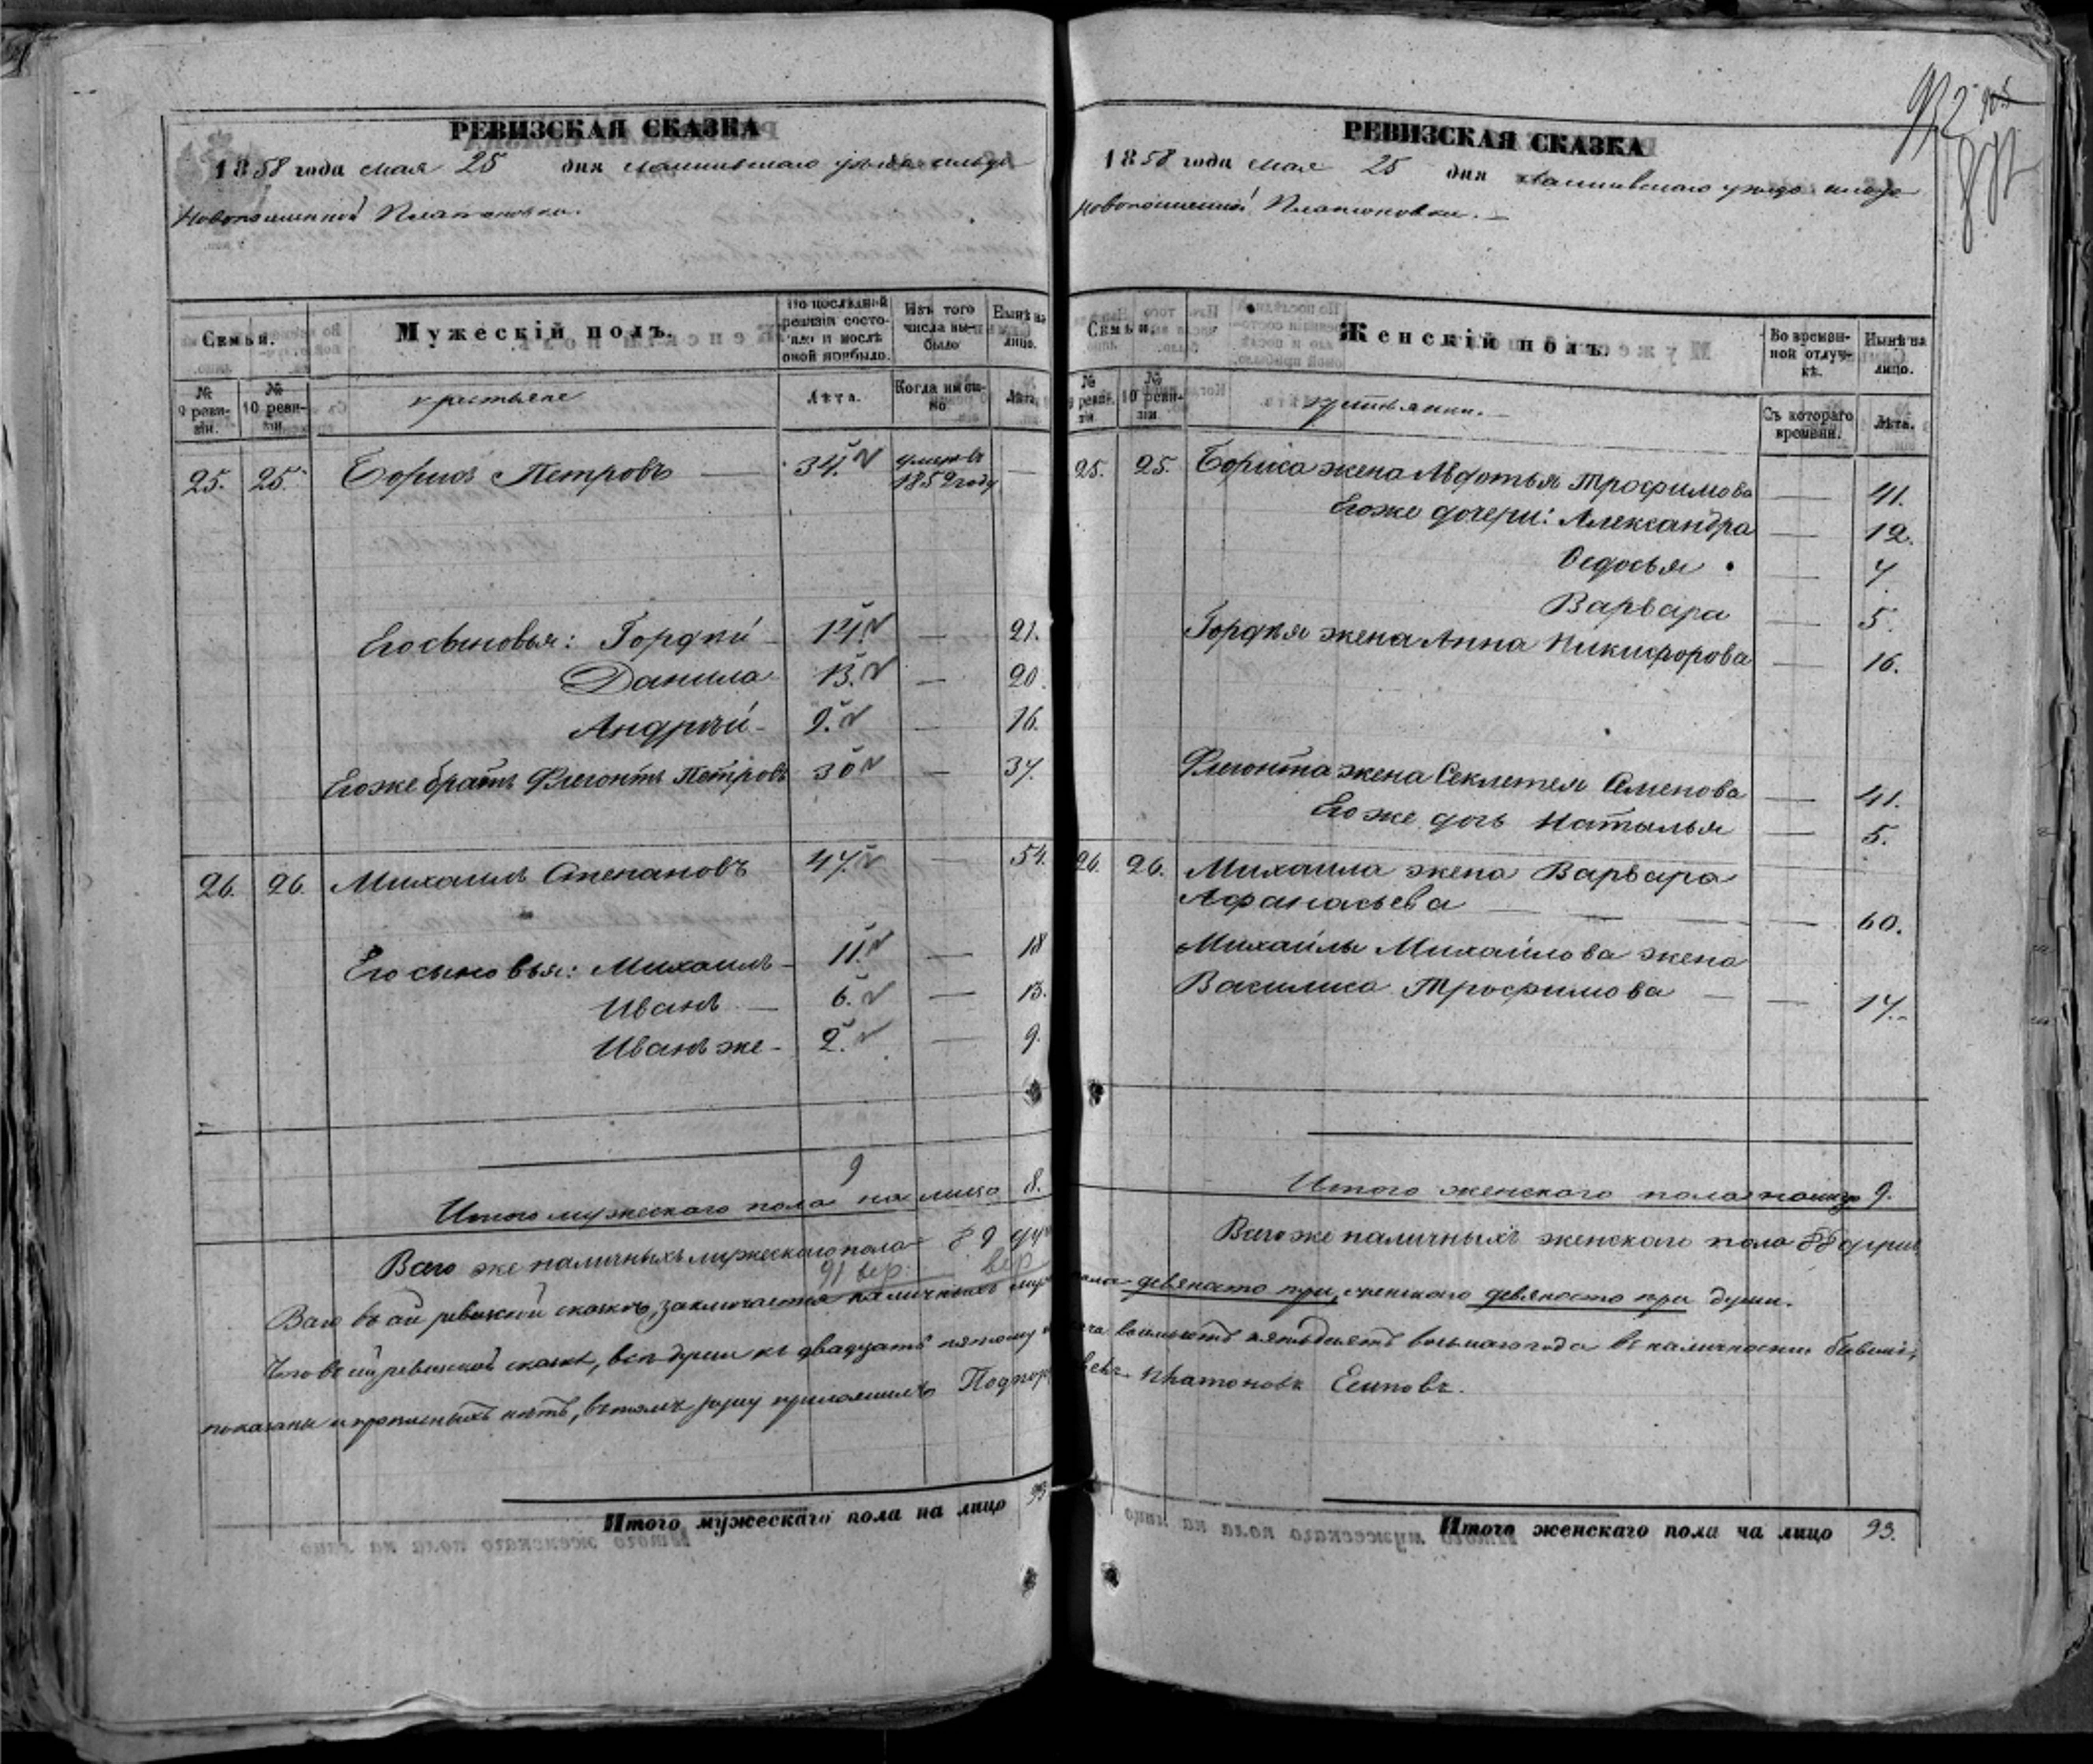 РЕВИЗСКАЯ СКАЗКА
1858 года мая 25 дня
Платоновки.
Семьи.
Мужескій полъ.
По послѣдней ревизіи состояло и послѣ оной прибыло.
Изъ того числа выбыло
Нынѣ на лицо.
№ 9 ревизіи.
№ 10 ревизіи.
крестьяне
Лѣта.
Когда именно.
Лѣта.
25. 25. Борисъ Петровъ 34. умеръ въ 1852 году
Его сыновья: Гордѣй 14. — 21.
Данила 13. — 20.
Андрей 9. — 16.
Его же братъ Флегонтъ Петровъ 30 — 37.
26. 26. Михаилъ Степановъ 47. — 54.
Его сыновья: Михаилъ 11. — 18
Иванъ 6. — 13.
Иванъ же 2. — 9.
9
Итого мужескаго пола на лицо 8.
Всего же наличныхъ мужескаго пола
Всего въ сей ревизской сказкѣ заключается наличныхъ
показаны и прописныхъ нѣтъ, въ томъ
Итого мужескаго пола на лицо 93
932
РЕВИЗСКАЯ СКАЗКА
1858 года мая 25 дня
Платоновки.
Семьи.
Женскій полъ.
Во временной отлучкѣ.
Нынѣ на лицо.
№ 9 ревизіи.
№ 10 ревизіи
крестьянки.
Съ котораго времени.
Лѣта.
25. 25. Бориса жена Авдотья Трофимова — 41.
Его же дочери: Александра — 12.
Ѳедосья — 7.
Варвара — 5.
Гордѣя жена Анна Никифорова — 16.
Флегонта жена Секлетея Семенова — 41.
Его же дочь Наталья — 5.
26. 26. Михаила жена Варвара
Афанасьева — 60.
Михаилы Михайлова жена
Василиса Трофимова — 17.
Итого женскаго пола на лицо 9.
Всего же наличныхъ женскаго пола
девяносто три, женскаго девяносто три души.
пятьдесятъ восьмаго года въ наличности
Платоновъ Есиповъ.
Итого женскаго пола на лицо 93.